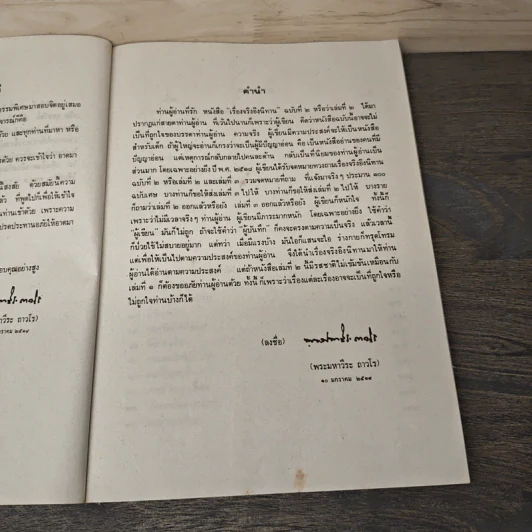 ธรรมพิเศษมาสอบจิตอยู่เสมอ
ด้วย และทุกท่านที่มาหา หรือ
ด้วย ควรจะเข้าใจว่า อาตมา
แสงสัย ด้วยสมัยนี้ความ
ที่พูดไปก็เพื่อให้เข้าใจ
ท่านเข้าด้วย เพราะความ
ปรดประทานอภัยให้อาตมา
อบคุณอย่างสูง
วีระ ถาวโร)
คำนำ
ท่านผู้อ่านที่รัก หนังสือ "เรื่องจริงอิงนิทาน" ฉบับที่ ๒ หรือว่าเล่มที่ ๒ ได้มา
ปรากฏแก่สายตาท่านผู้อ่าน ที่เว้นไปนานก็เพราะว่าผู้เขียน คิดว่าหนังสือฉบับนี้อาจจะไม่
เป็นที่ถูกใจของบรรดาท่านผู้อ่าน ความจริง ผู้เขียนมีความประสงค์จะให้เป็นหนังสือ
สำหรับเด็ก ถ้าผู้ใหญ่จะอ่านก็เกรงว่าจะเป็นผู้มีปัญญาอ่อน คือ เป็นหนังสืออ่านของคนที่มี
ปัญญาอ่อน แต่เหตุการณ์กลับกลายไปคนละด้าน กลับเป็นที่นิยมของท่านผู้อ่านเป็น
ส่วนมาก โดยเฉพาะอย่างยิ่ง ปี พ.ศ. ๒๕๑๘ ผู้เขียนได้รับจดหมายทวงถามเรื่องจริงอิงนิทาน
ฉบับที่ ๒ หรือเล่มที่ ๒ และเล่มที่ ๓ รวมจดหมายที่ถาม ที่แจ้งมาจริง ๆ ประมาณ ๑๐๐
ฉบับเศษ บางท่านก็ขอให้ส่งเล่มที่ ๓ ไปให้ บางท่านก็ขอให้ส่งเล่มที่ ๒ ไปให้ บางราย
ก็ถามว่าเล่มที่ ๒ ออกแล้วหรือยัง เล่มที่ ๓ ออกแล้วหรือยัง ผู้เขียนก็หนักใจ ทั้งนี้ก็
เพราะว่าไม่มีเวลาจริง ๆ ท่านผู้อ่าน ผู้เขียนมีภาระมากหนัก โดยเฉพาะอย่างยิ่ง ใช้คำว่า
"ผู้เขียน" มันก็ไม่ถูก ถ้าจะใช้คำว่า "ผู้บันทึก" ก็คงจะตรงตามความเป็นจริง แล้วเวลานี้
ก็ป่วยไข้ไม่สบายอยู่มาก แต่ทว่า เมื่อมีแรงบ้าง มันไอก็แสนจะไอ ร่างกายก็ทรุดโทรม
แต่เพื่อให้เป็นไปตามความประสงค์ของท่านผู้อ่าน จึงได้นำเรื่องจริงอิงนิทานมาให้ท่าน
ผู้อ่านได้อ่านตามความประสงค์ แต่ถ้าหนังสือเล่มที่ ๒ นี้มีรสชาติไม่เข้มข้นเหมือนกับ
เล่มที่ ๑ ก็ต้องขออภัยท่านผู้อ่านด้วย ทั้งนี้ ก็เพราะว่าเรื่องแต่ละเรื่องอาจจะเป็นที่ถูกใจหรือ
ไม่ถูกใจท่านบ้างก็ได้
(ลงชื่อ)
(พระมหาวีระ ถาวโร)
๑๐ มกราคม ๒๕๑๙